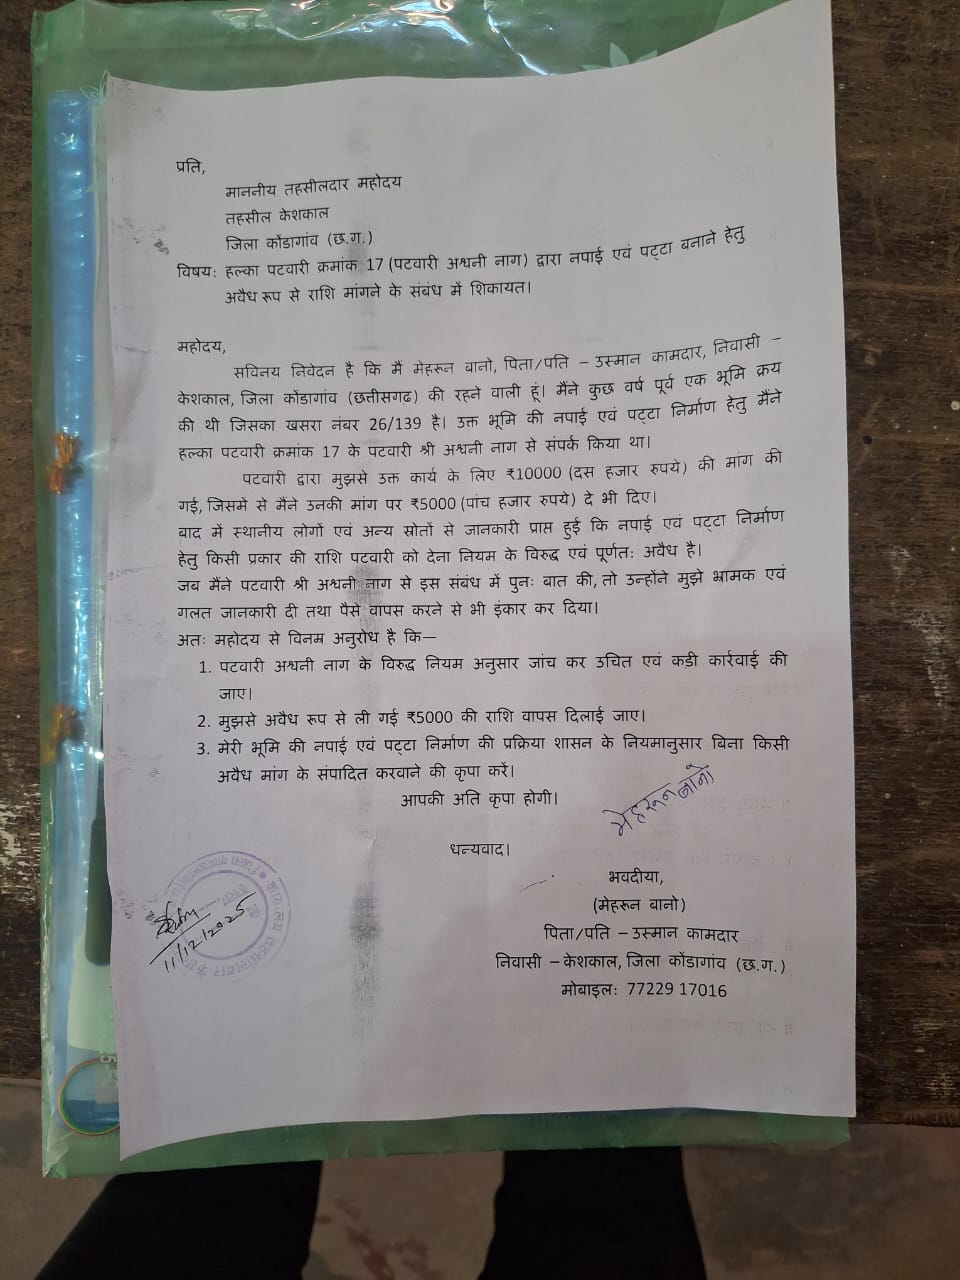 प्रति,
माननीय तहसीलदार महोदय
तहसील केशकाल
जिला कोंडागांव (छ.ग.)
विषय: हल्का पटवारी क्रमांक 17 (पटवारी अश्वनी नाग) द्वारा नपाई एवं पट्टा बनाने हेतु
अवैध रूप से राशि मांगने के संबंध में शिकायत।
महोदय,
सविनय निवेदन है कि मैं मेहरून बानो, पिता/पति – उस्मान कामदार, निवासी –
केशकाल, जिला कोंडागांव (छत्तीसगढ़) की रहने वाली हूं। मैंने कुछ वर्ष पूर्व एक भूमि क्रय
की थी जिसका खसरा नंबर 26/139 है। उक्त भूमि की नपाई एवं पट्टा निर्माण हेतु मैंने
हल्का पटवारी क्रमांक 17 के पटवारी श्री अश्वनी नाग से संपर्क किया था।
पटवारी द्वारा मुझसे उक्त कार्य के लिए ₹10000 (दस हजार रुपये) की मांग की
गई, जिसमें से मैंने उनकी मांग पर ₹5000 (पांच हजार रुपये) दे भी दिए।
बाद में स्थानीय लोगों एवं अन्य स्रोतों से जानकारी प्राप्त हुई कि नपाई एवं पट्टा निर्माण
हेतु किसी प्रकार की राशि पटवारी को देना नियम के विरुद्ध एवं पूर्णतः अवैध है।
जब मैंने पटवारी श्री अश्वनी नाग से इस संबंध में पुनः बात की, तो उन्होंने मुझे भ्रामक एवं
गलत जानकारी दी तथा पैसे वापस करने से भी इंकार कर दिया।
अतः महोदय से विनम्र अनुरोध है कि—
1. पटवारी अश्वनी नाग के विरुद्ध नियम अनुसार जांच कर उचित एवं कडी कार्रवाई की
जाए।
2. मुझसे अवैध रूप से ली गई ₹5000 की राशि वापस दिलाई जाए।
3. मेरी भूमि की नपाई एवं पट्टा निर्माण की प्रक्रिया शासन के नियमानुसार बिना किसी
अवैध मांग के संपादित करवाने की कृपा करें।
आपकी अति कृपा होगी।
मेहरून बानो
धन्यवाद।
भवदीया,
(मेहरून बानो)
पिता/पति – उस्मान कामदार
निवासी – केशकाल, जिला कोंडागांव (छ.ग.)
मोबाइल: 77229 17016
11/12/2025